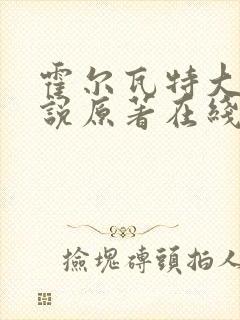 霍尔瓦特大
說原著在綫
撿塊磚頭拍人